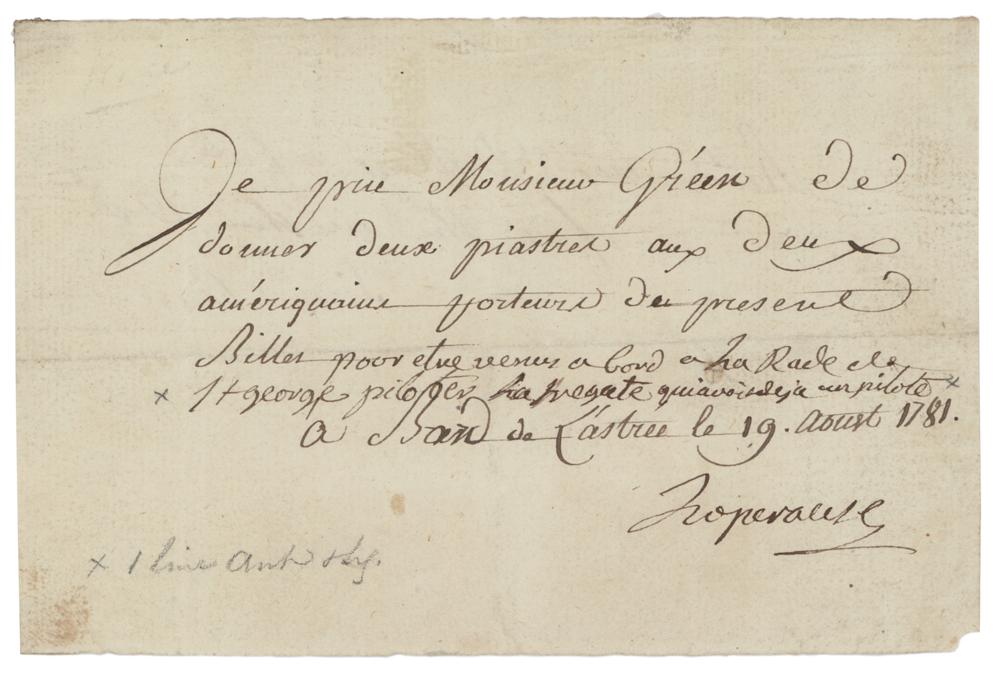 Je prie Monsieur Gréen de
donner deux piastres aux deux
amériquains porteurs du présent
Billet poor etre venus a bord a La Rade de
x St george piloter La fregate qui avoit deja un pilote x
A Bord de L'astrée le 19. Aoust 1781.
Laperouse
x 1 line Auth